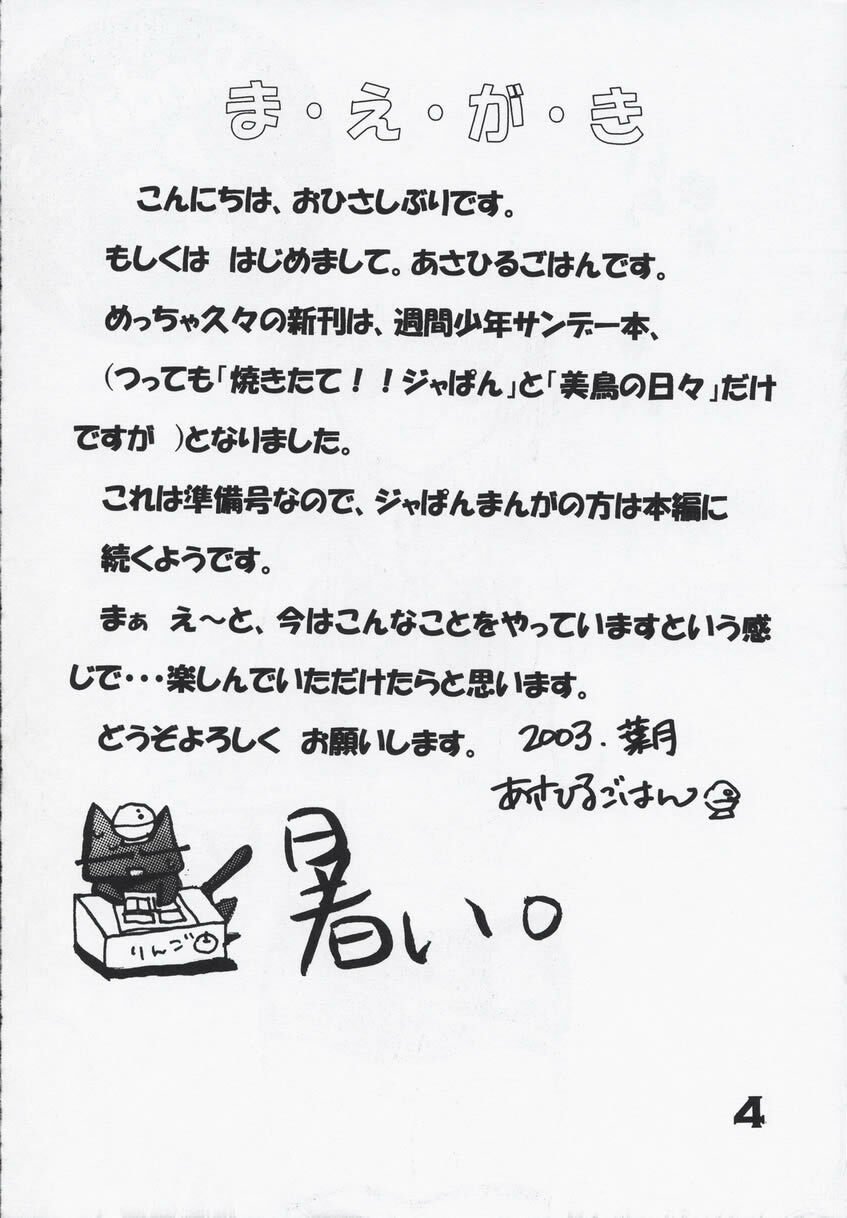 ま・え・が・き
こんにちは、おひさしぶりです。
もしくは はじめまして。あさひるごはんです。
めっちゃ久々の新刊は、週間少年サンデー本、
(つっても「焼きたて！！ジャぱん」と「美鳥の日々」だけ
ですが )となりました。
これは準備号なので、ジャぱんまんがの方は本編に
続くようです。
まぁ え～と、今はこんなことをやっていますという感
じで・・・楽しんでいただけたらと思います。
どうぞよろしく お願いします。 2003.葉月
あさひるごはん
りんご
暑い。
4